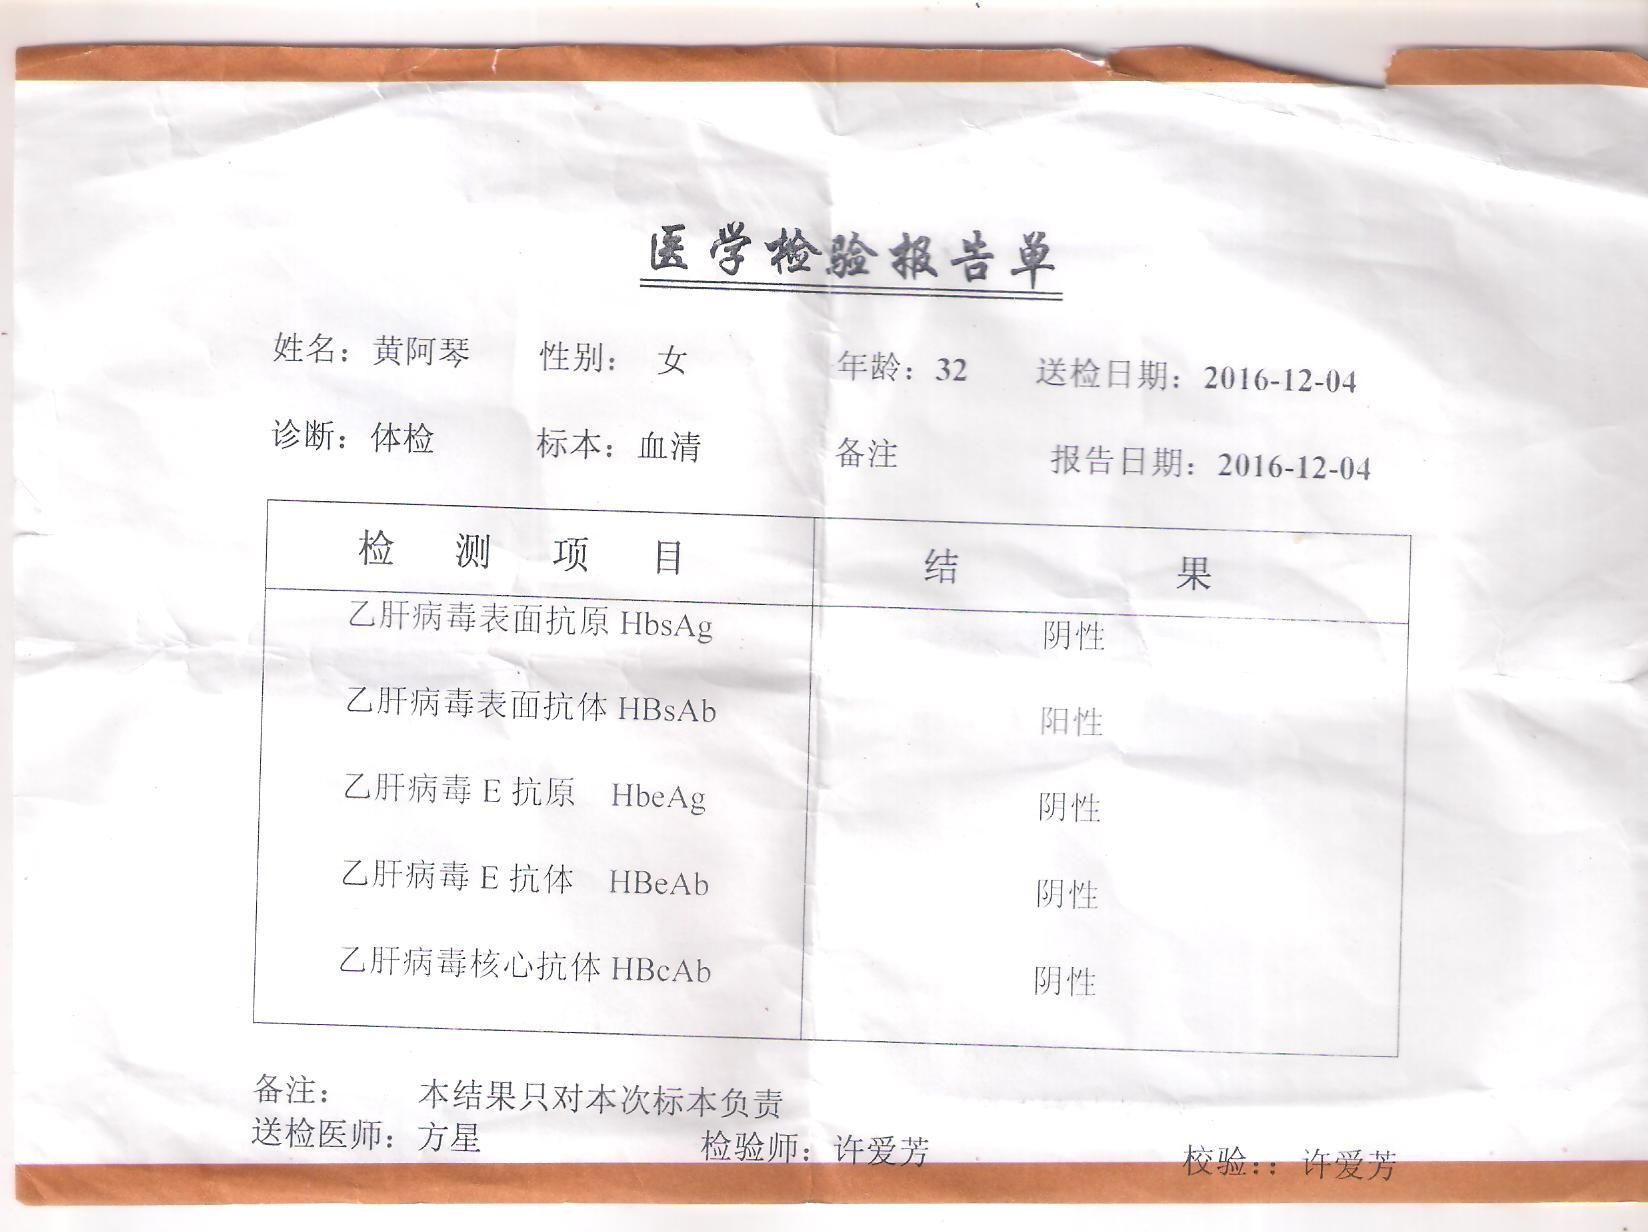 医学检验报告单
姓名：黄阿琴 性别： 女 年龄：32 送检日期：2016-12-04
诊断：体检 标本：血清 备注 报告日期：2016-12-04
检 测 项 目 结 果
乙肝病毒表面抗原 HbsAg 阴性
乙肝病毒表面抗体 HBsAb 阳性
乙肝病毒 E 抗原 HbeAg 阴性
乙肝病毒 E 抗体 HBeAb 阴性
乙肝病毒核心抗体 HBcAb 阴性
备注： 本结果只对本次标本负责
送检医师：方星 检验师：许爱芳 校验：：许爱芳